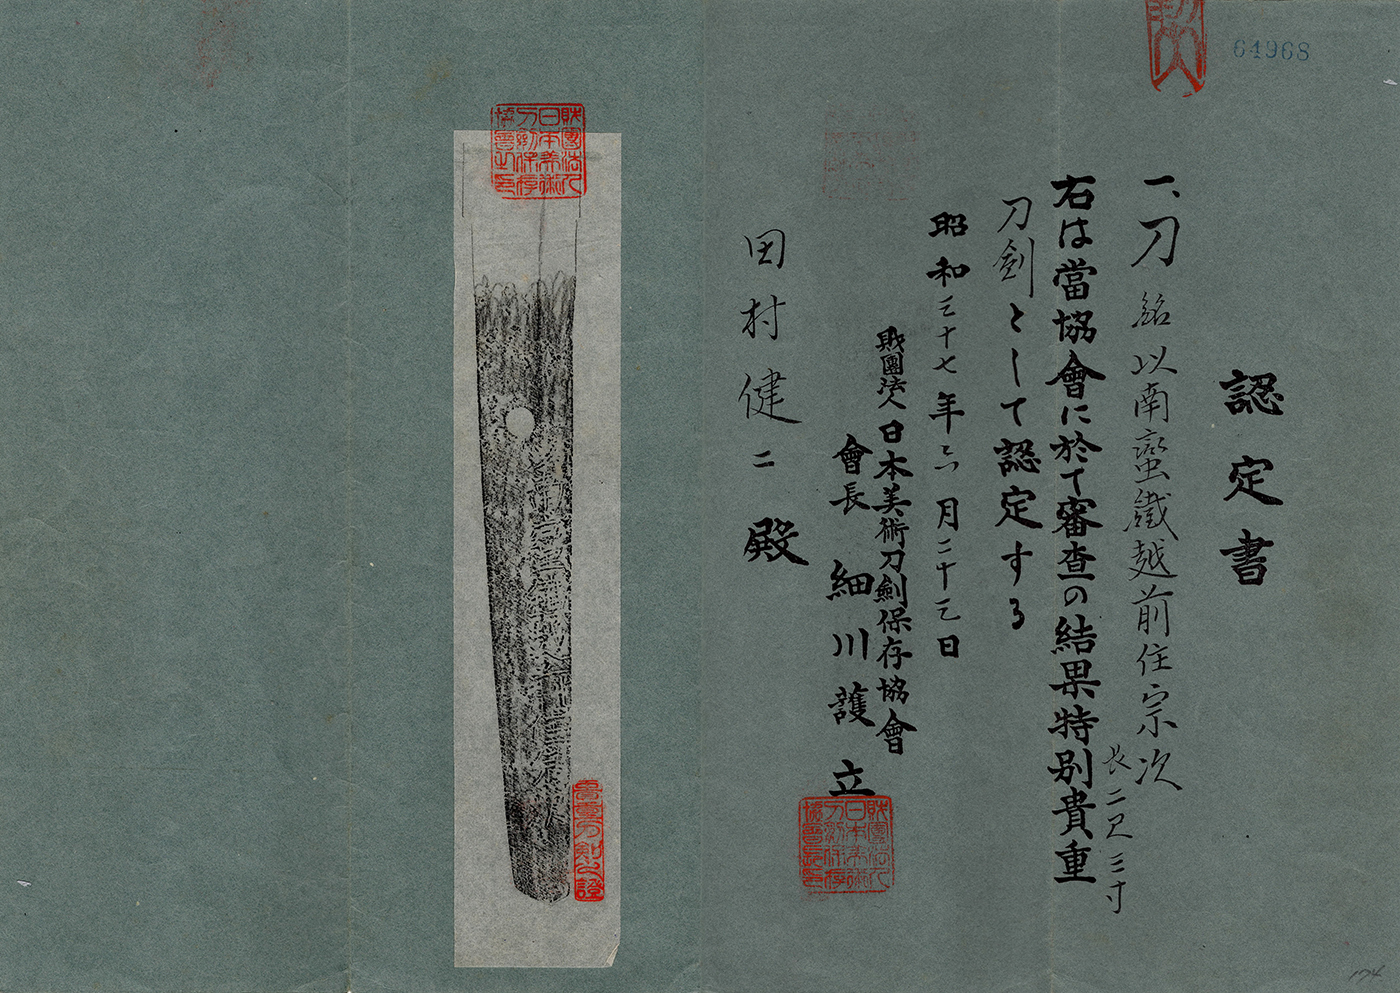 64968
認定書
一、刀 銘 以南蛮鐵越前住宗次
長二尺三寸
右は當協會に於て審査の結果特別貴重
刀剣として認定する
昭和三十七年六月二十三日
財團法人日本美術刀劍保存協會
會長 細川護立
財團法人日本美術刀劍保存協會長之印
田村健二殿
財團法人日本美術刀劍保存協會之印
貴重刀剣之證
174